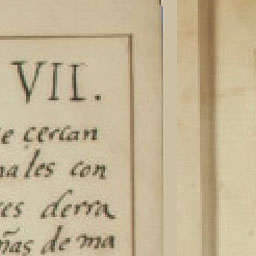 VII.
e çercan
ales con
es derra
ñas de ma